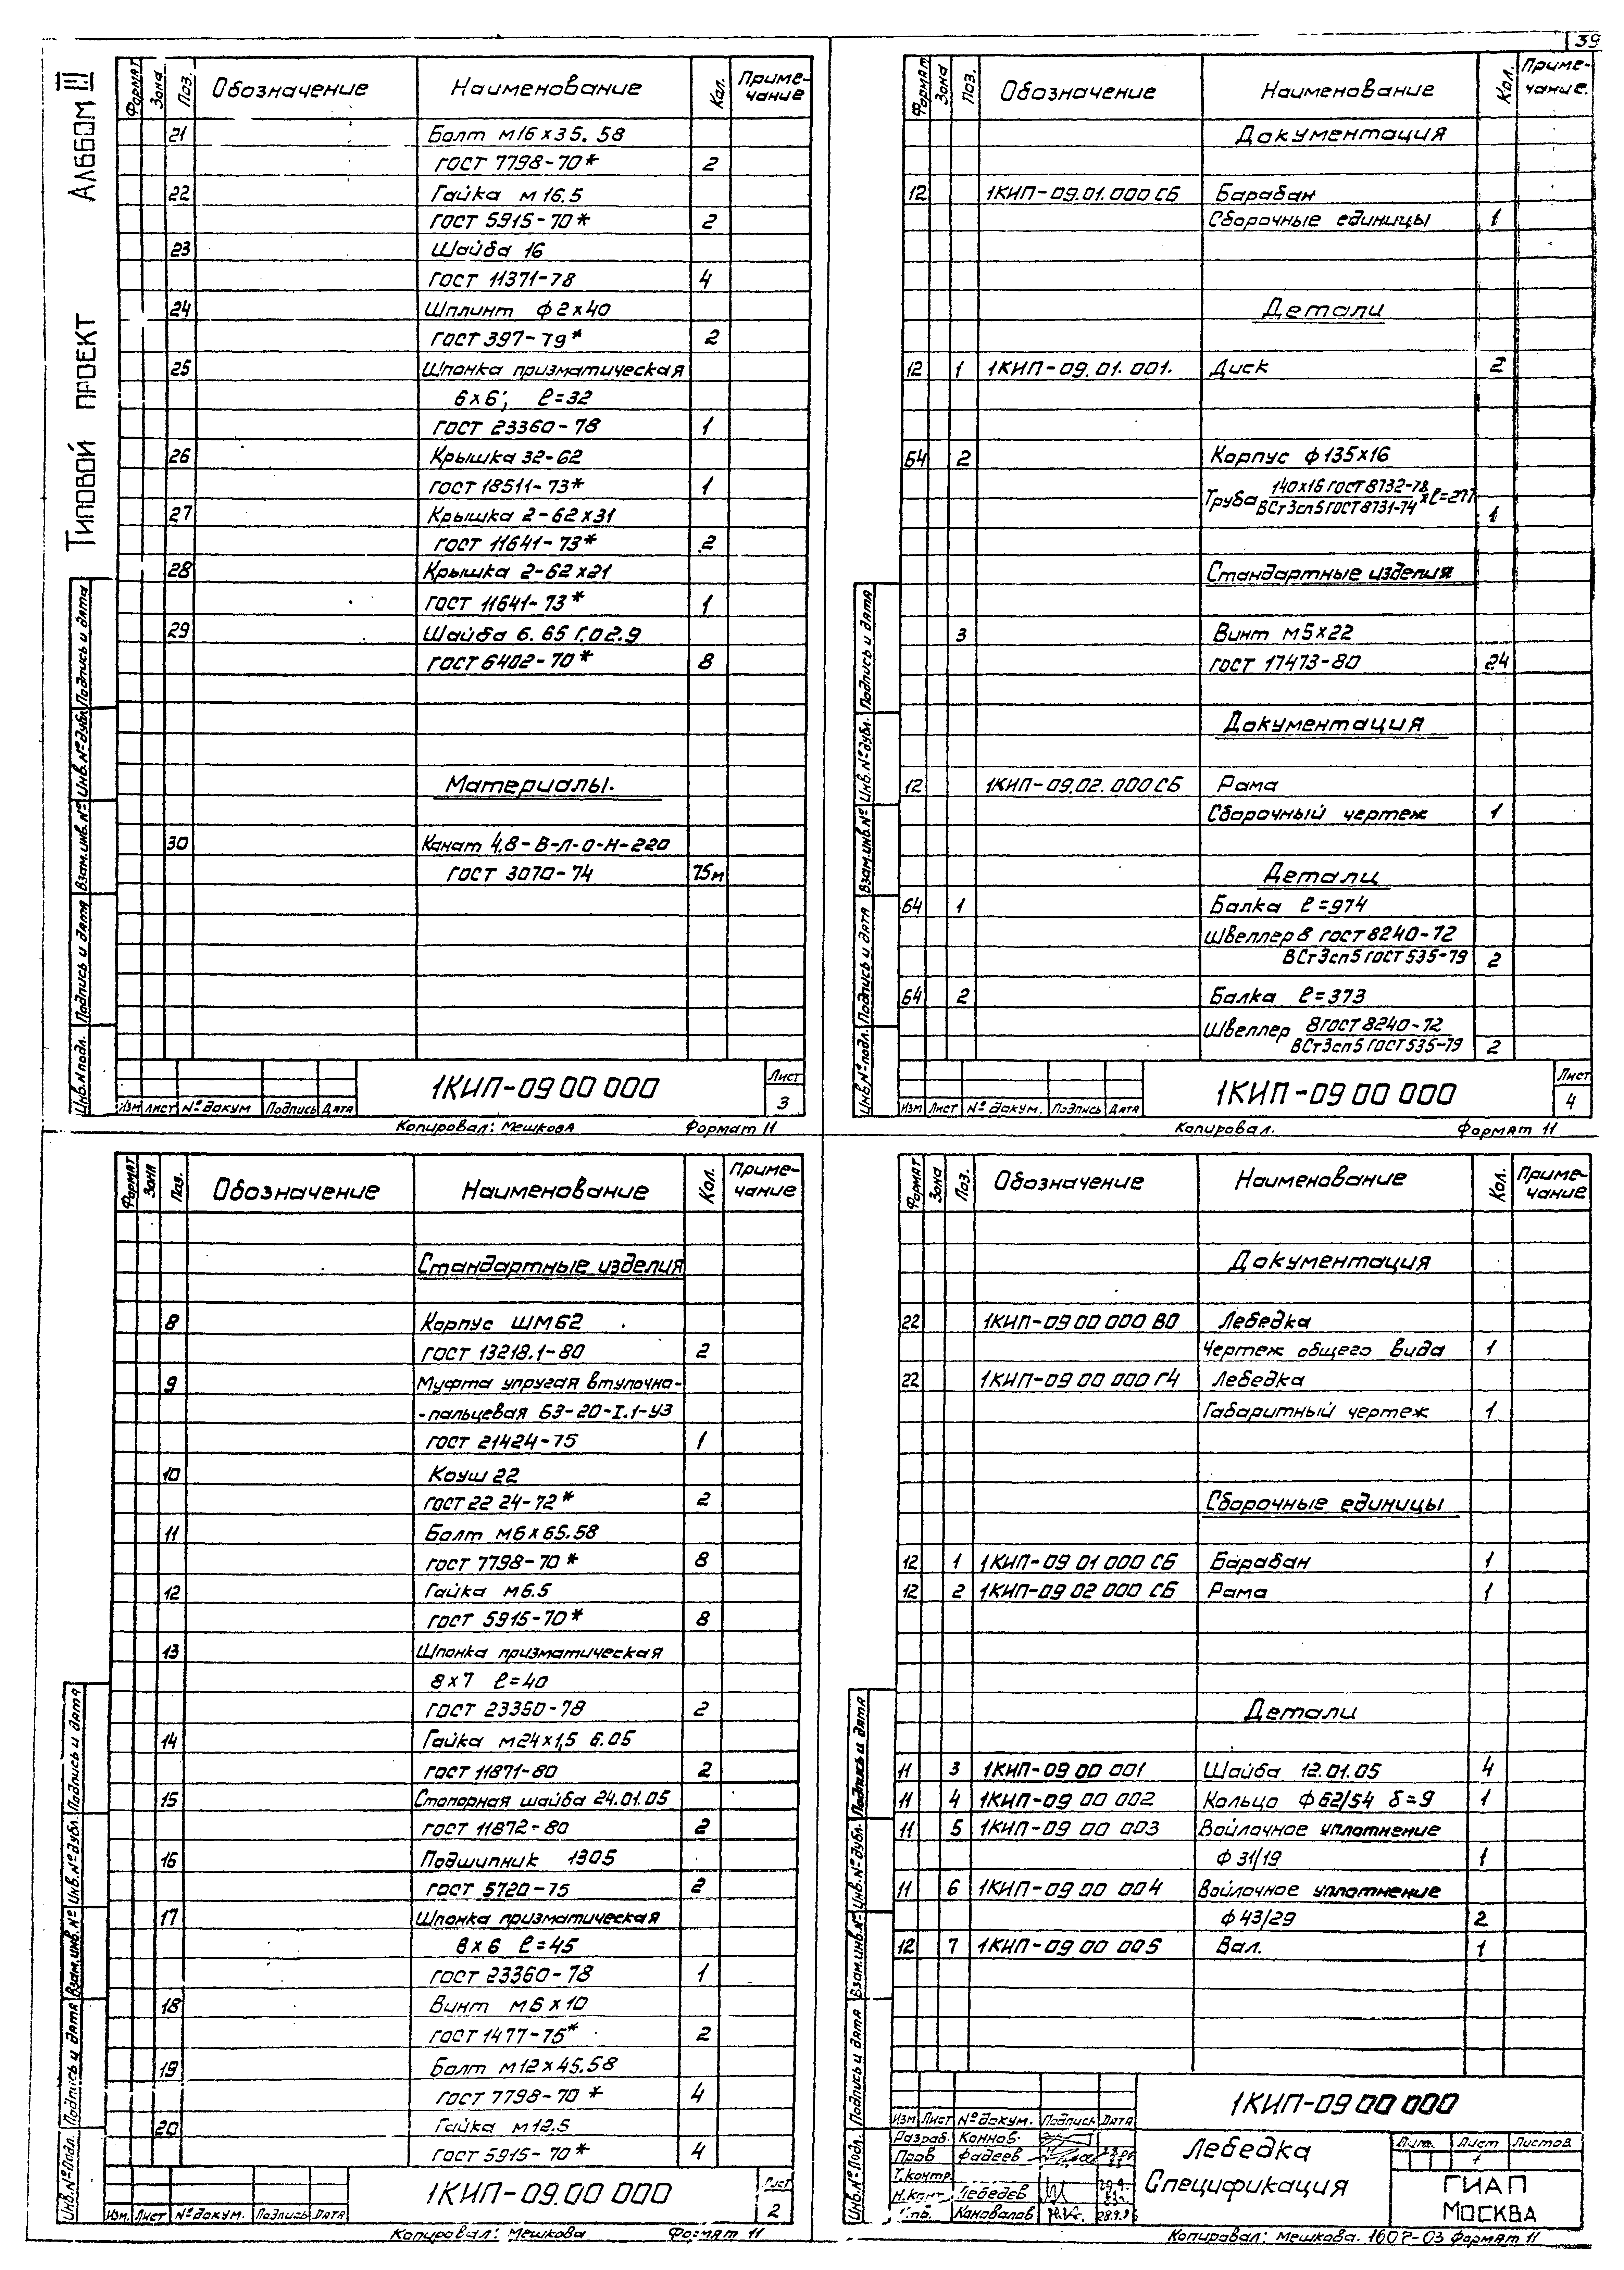 39
Типовой проект Альбом III
Формат Зона Поз. Обозначение Наименование Кол. Примечание
21 Болт М16×35.58
ГОСТ 7798-70* 2
22 Гайка М16.5
ГОСТ 5915-70* 2
23 Шайба 16
ГОСТ 11371-78 4
24 Шплинт ф2×40
ГОСТ 397-79* 2
25 Шпонка призматическая
6×6; ℓ=32
ГОСТ 23360-78 1
26 Крышка 32-62
ГОСТ 18511-73* 1
27 Крышка 2-62×31
ГОСТ 11641-73* 2
28 Крышка 2-62×21
ГОСТ 11641-73* 1
29 Шайба 6. 65Г.02.9
ГОСТ 6402-70* 8
Материалы.
30 Канат 4,8-В-Л-О-Н-220
ГОСТ 3070-74 75м
Инв.№подл. Подпись и дата Взам.инв.№ Инв.№дубл. Подпись и дата
Изм Лист № докум Подпись Дата
1КИП-09 00 000
Лист 3
Копировал: Мешкова Формат 11
Формат Зона Поз. Обозначение Наименование Кол. Примечание.
Документация
12 1КИП-09.01.000 СБ Барабан
Сборочные единицы 1
Детали
12 1 1КИП-09.01.001. Диск 2
Б4 2 Корпус ф135×16
Труба 140×16 ГОСТ 8732-78 / ВСт3сп5 ГОСТ 8731-74 ×ℓ=277
1
Стандартные изделия
3 Винт М5×22
ГОСТ 17473-80 24
Документация
12 1КИП-09.02.000СБ Рама
Сборочный чертеж 1
Детали
Б4 1 Балка ℓ=974
Швеллер 8 ГОСТ 8240-72
ВСт3сп5 ГОСТ 535-79 2
Б4 2 Балка ℓ=373
Швеллер 8 ГОСТ 8240-72
ВСт3сп5 ГОСТ 535-79 2
Инв.№подл. Подпись и дата Взам.инв.№ Инв.№дубл. Подпись и дата
Изм Лист № докум. Подпись Дата
1КИП-09 00 000
Лист 4
Копировал. Формат 11
Формат Зона Поз. Обозначение Наименование Кол. Примечание
Стандартные изделия
8 Корпус ШМ62
ГОСТ 13218.1-80 2
9 Муфта упругая втулочно-
-пальцевая 63-20-I.1-У3
ГОСТ 21424-75 1
10 Коуш 22
ГОСТ 22 24-72* 2
11 Болт М6×65.58
ГОСТ 7798-70* 8
12 Гайка М6.5
ГОСТ 5915-70* 8
13 Шпонка призматическая
8×7 ℓ=40
ГОСТ 23360-78 2
14 Гайка М24×1,5 6.05
ГОСТ 11871-80 2
15 Стопорная шайба 24.01.05
ГОСТ 11872-80 2
16 Подшипник 1305
ГОСТ 5720-75 2
17 Шпонка призматическая
6×6 ℓ=45
ГОСТ 23360-78 1
18 Винт М6×10
ГОСТ 1477-75* 2
19 Болт М12×45.58
ГОСТ 7798-70* 4
20 Гайка М12.5
ГОСТ 5915-70* 4
Инв.№подл. Подпись и дата Взам.инв.№ Инв.№дубл. Подпись и дата
Изм. Лист № докум. Подпись Дата
1КИП-09.00 000
Лист 2
Копировал: Мешкова Формат 11
Формат Зона Поз. Обозначение Наименование Кол. Примечание
Документация
22 1КИП-09 00 000 ВО Лебедка
Чертеж общего вида 1
22 1КИП-09 00 000 ГЧ Лебедка
Габаритный чертеж 1
Сборочные единицы
12 1 1КИП-09 01 000 СБ Барабан 1
12 2 1КИП-09 02 000 СБ Рама 1
Детали
11 3 1КИП-09 00 001 Шайба 12.01.05 4
11 4 1КИП-09 00 002 Кольцо ф62/54 δ=9 1
11 5 1КИП-09 00 003 Войлочное уплотнение
ф31/19 1
11 6 1КИП-09 00 004 Войлочное уплотнение
ф43/29 2
12 7 1КИП-09 00 005 Вал. 1
Инв.№подл. Подпись и дата Взам.инв.№ Инв.№дубл. Подпись и дата
1КИП-09 00 000
Изм Лист № докум. Подпись Дата
Разраб. Коннов.
Пров Фадеев
Т.контр.
Н.конт. Лебедев
Утв. Коновалов
Лебедка
Спецификация
Лит. Лист Листов
1
ГИАП
МОСКВА
Копировал: Мешкова. Формат 11